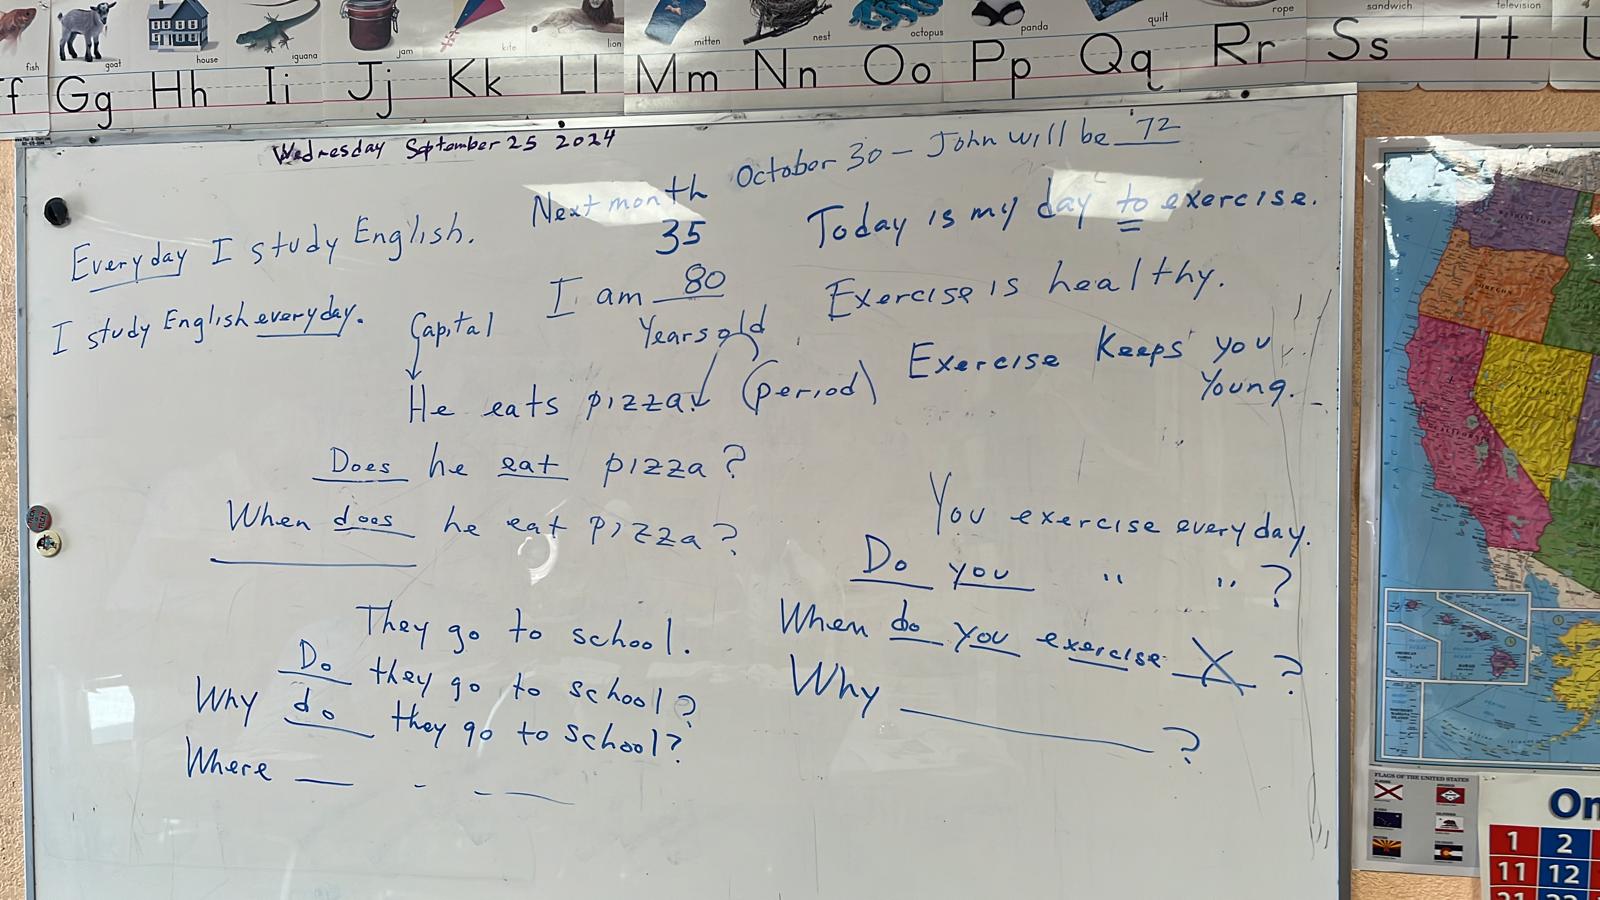 fish goat house iguana jam kite lion mitten nest octopus panda quilt rope sandwich television
f Gg Hh Ii Jj Kk Ll Mm Nn Oo Pp Qq Rr Ss Tt
Wednesday September 25 2024
October 30 – John will be 72
Next month
35
Today is my day to exercise.
Everyday I study English.
I am 80
Years old
Exercise is healthy.
I study English everyday.
Capital
He eats pizza. (period)
Exercise Keeps you
Young.
Does he eat pizza?
When does he eat pizza?
You exercise every day.
Do you " " ?
They go to school.
When do you exercise X ?
Do they go to school?
Why ?
Why do they go to school?
Where
WASHINGTON
OREGON
FLAGS OF THE UNITED STATES
On
1 2
11 12